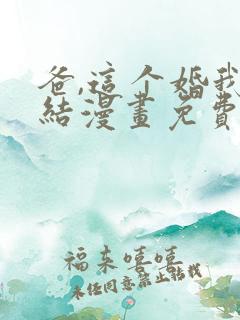 爸,這个婚我
結漫畫免費
福来嘻嘻
未经同意禁止转载